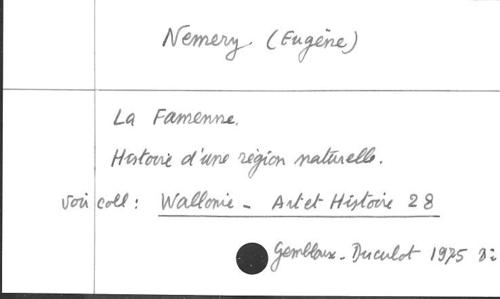 Nemery (Eugène)
La Famenne.
Histoire d'une région naturelle.
voir coll: Wallonie - Art et Histoire 28
Gembloux - Duculot 1975